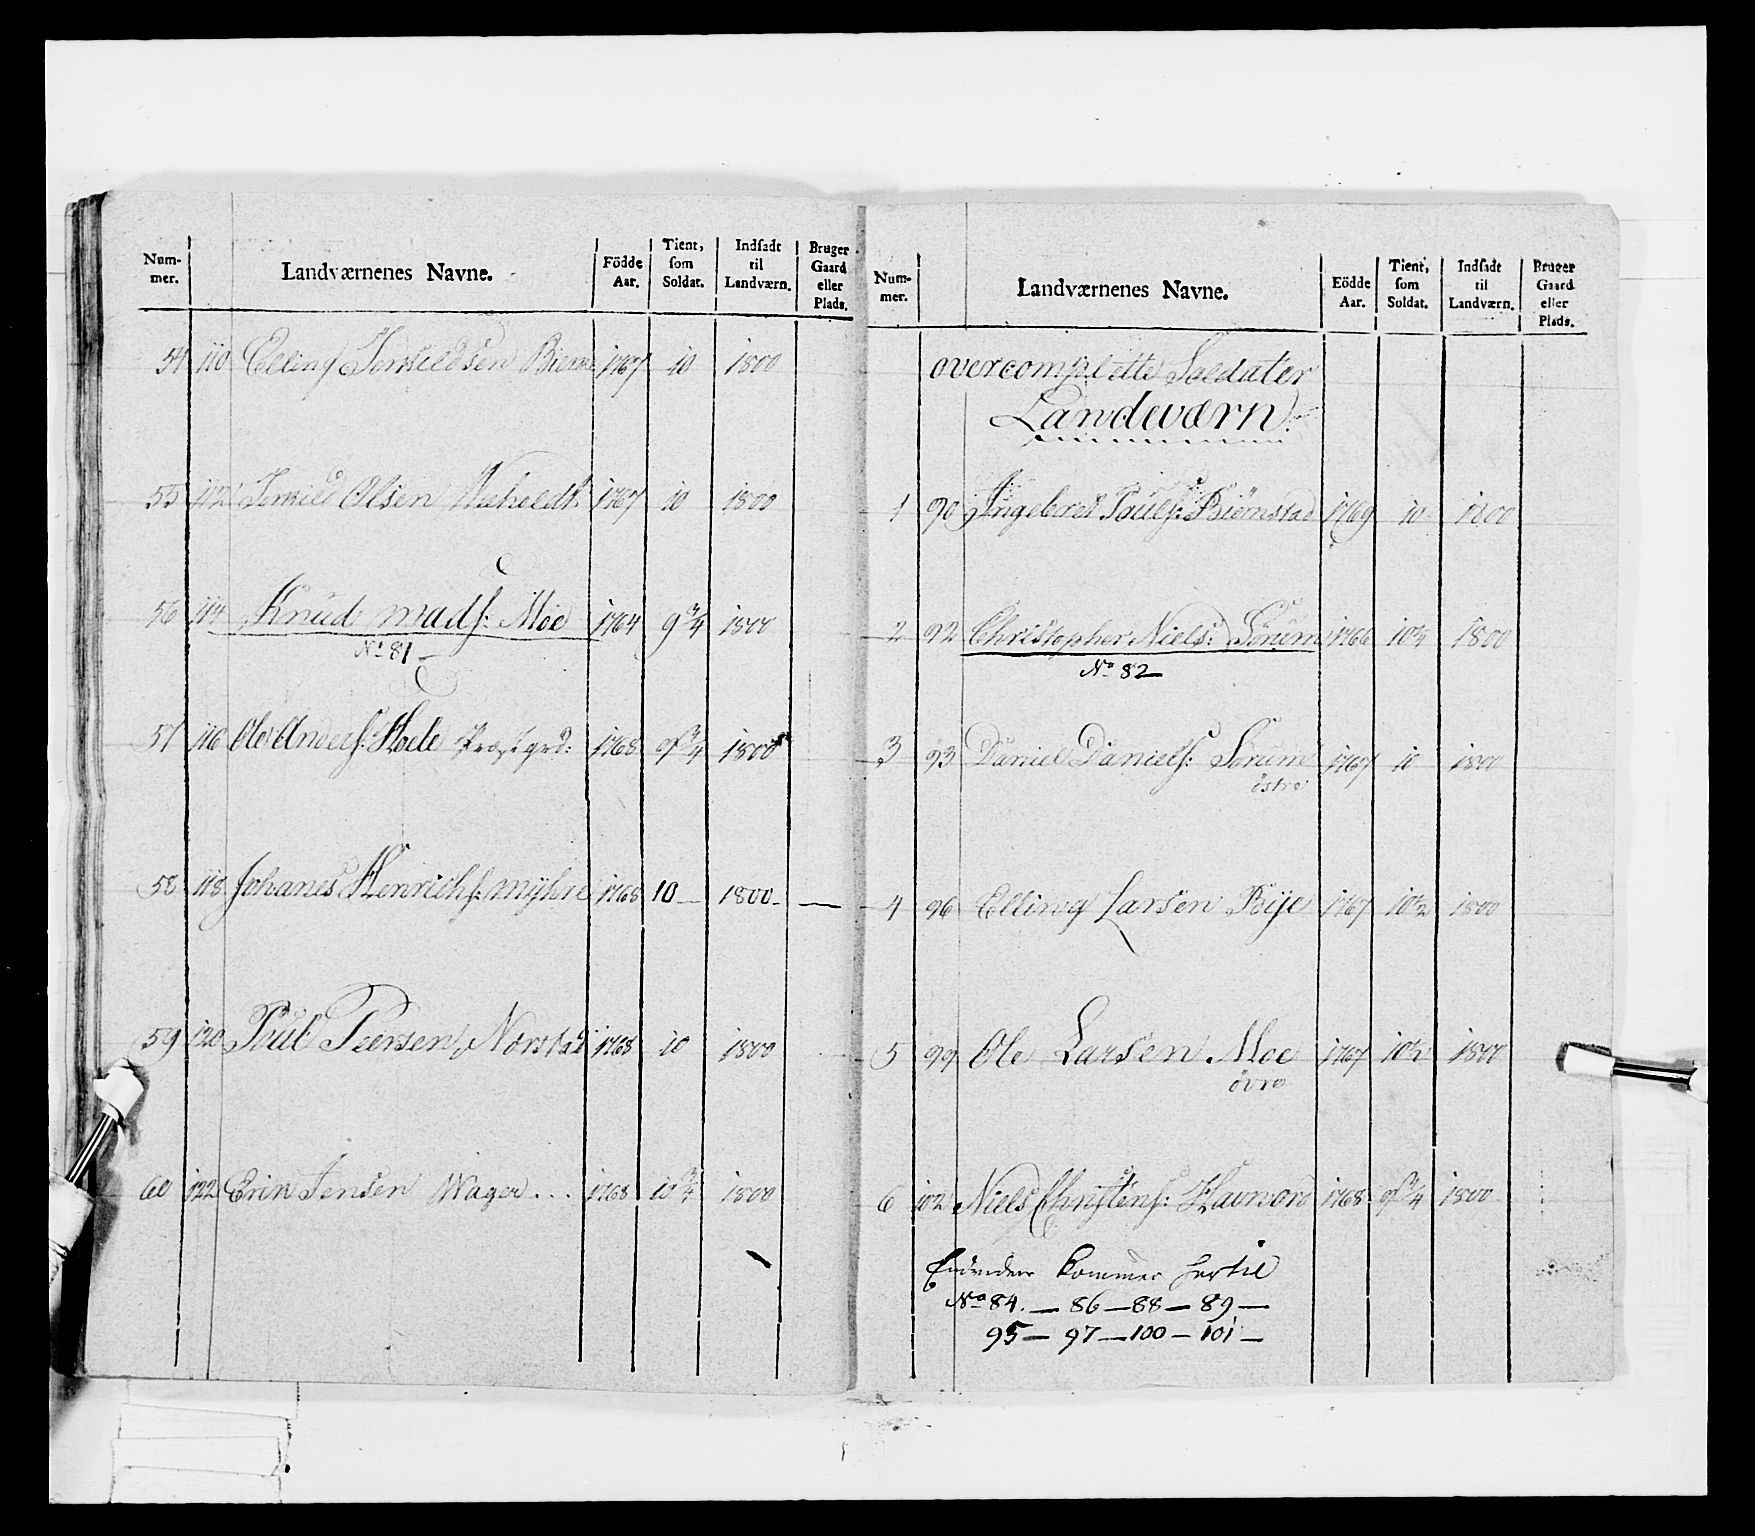 Num-
mer.
Landværnenes Navne.
Födde
Aar.
Tient,
som
Soldat.
Indsadt
til
Landværn.
Bruger
Gaard
eller
Plads.
54 110 Elling 1767 10 1800
55 112 Olsen 1767 10 1800
56 114 Knud Mads: Moe 1764 9 3/4 1800
No 81 —
57 116 Ole Anders: Hole Præstgrd: 1768 9 3/4 1800
58 118 Johanes Henrichs: Myhre 1768 10 — 1800 — —
59 120 Poul Peersen Norstad 1768 10 1800
60 122 Erik Jensen Wager ... 1768 10 3/4 1800
Num-
mer.
Landværnenes Navne.
Födde
Aar.
Tient,
som
Soldat.
Indsadt
til
Landværn.
Bruger
Gaard
eller
Plads.
overcomplette Soldater
Landeværn
1 90 Ingebret Pouls: Biørnstad 1769 10 1800
2 92 Christopher Niels: Sørum 1766 10 1/4 1800
No 82 —
3 93 Daniel Daniels: Sørum 1767 10 1800
östre
4 96 Elling Larsen Rÿe 1767 10 1/2 1800
5 99 Ole Larsen Moe 1767 10 1/2 1800
övre
6 102 Niels Christens: 1768 9 3/4 1800
kommer hertil
No 84. — 86 — 88 — 89 —
95 — 97 — 100 — 101 —